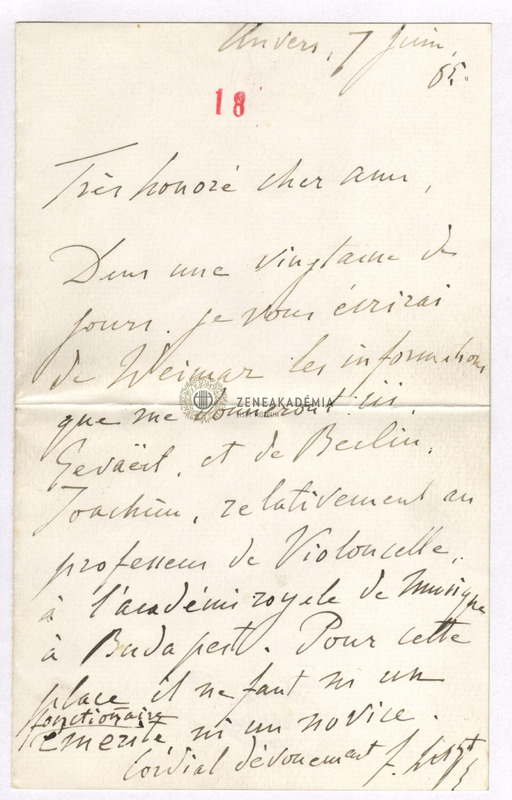 Anvers, 7 Juin,
85.
18
Très honoré cher ami,
Dans une vingtaine de
jours. je vous écrirai
de Weimar les informations
que me donneront ici,
ZENEAKADÉMIA
Gevaërt, et de Berlin,
Joachim, relativement au
professeur de Violoncelle,
à l'académie royale de Musique
à Budapest. Pour cette
place il ne faut ni un
fonctionaire
émerite ni un novice.
Cordial dévouement F. Liszt